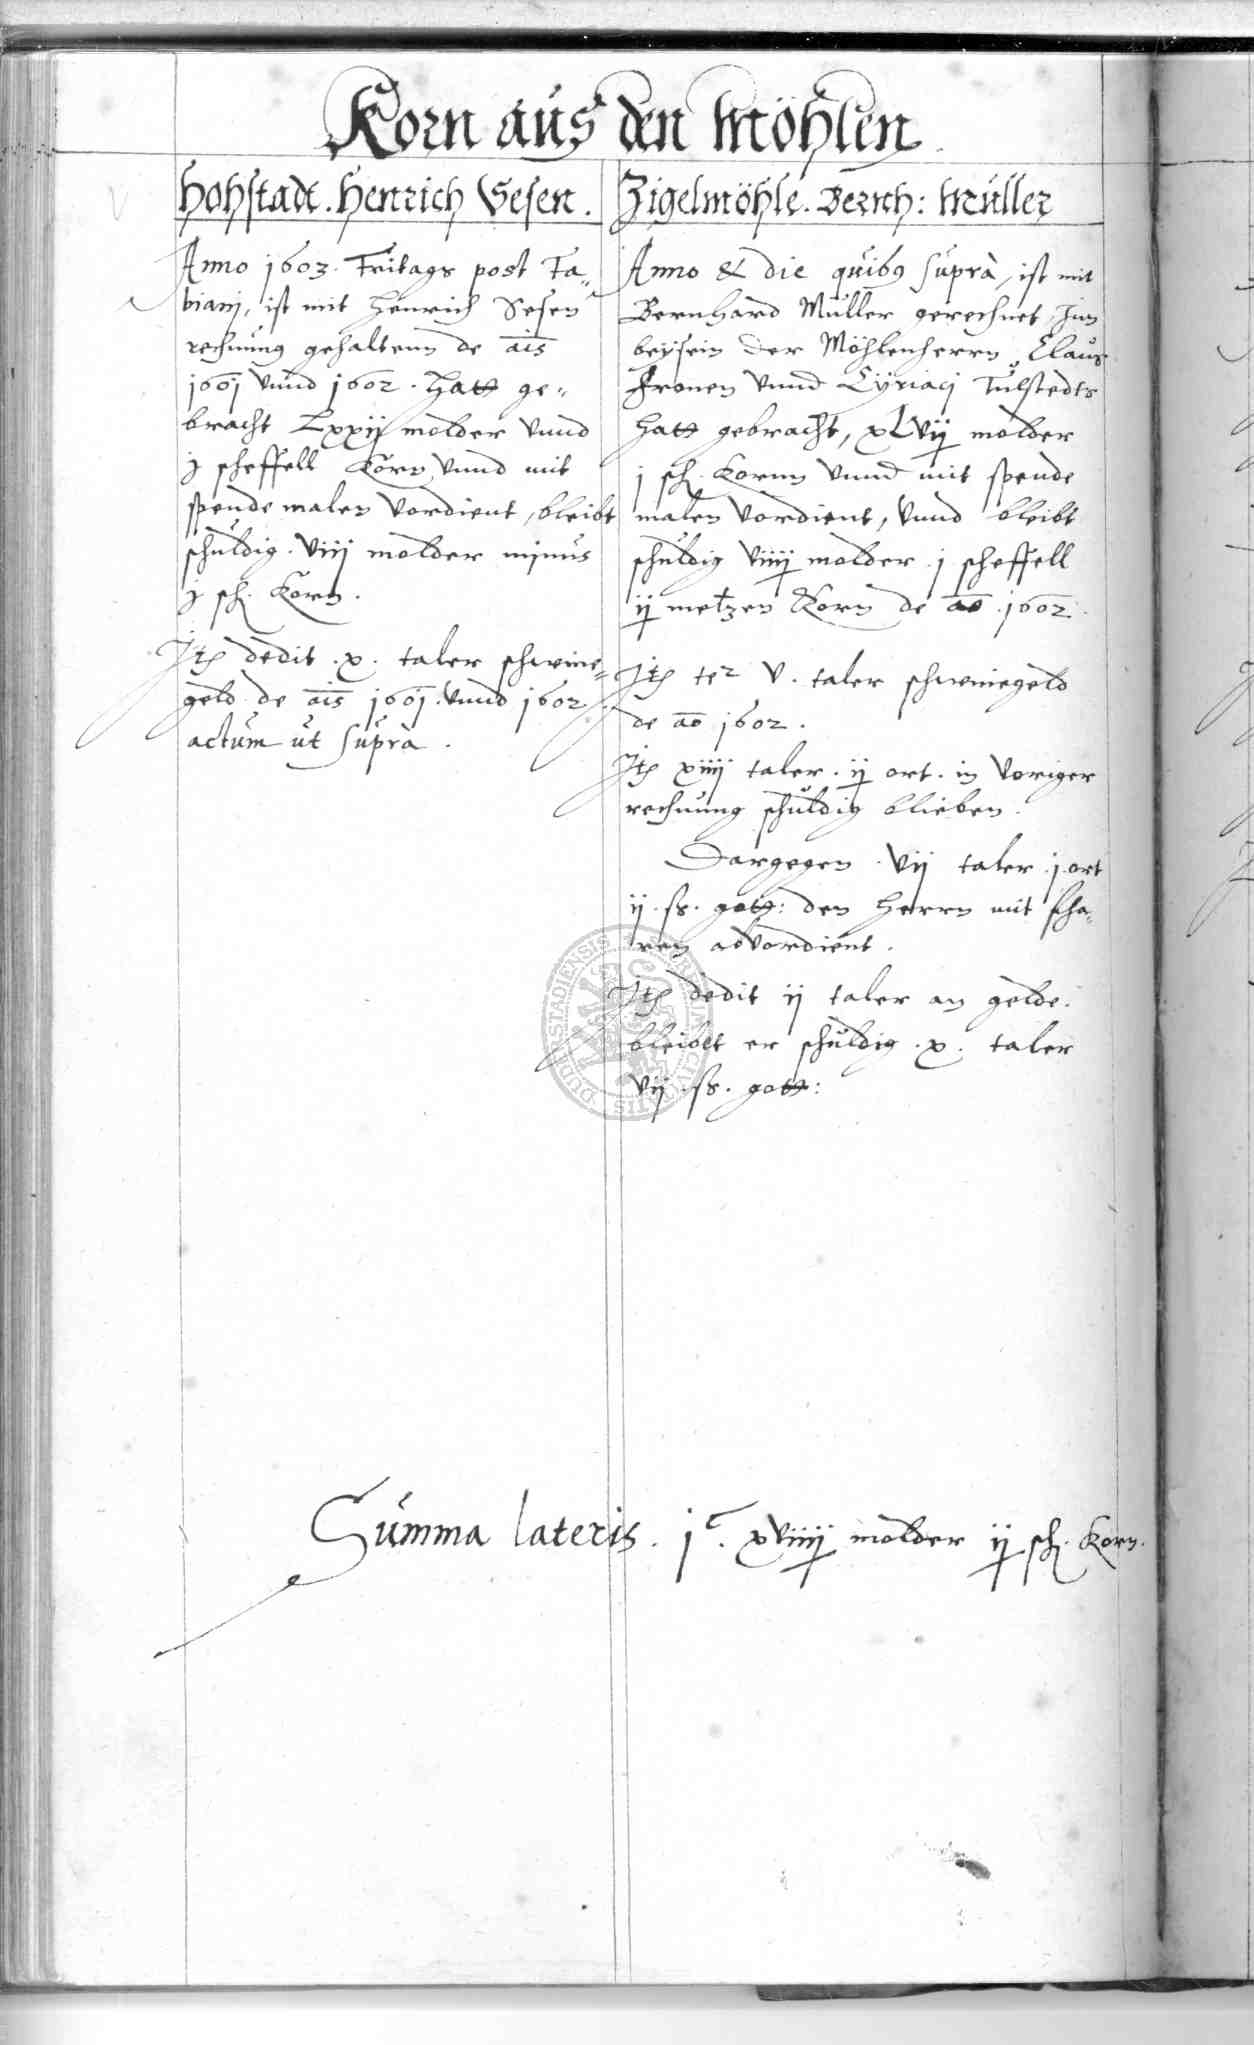 Korn aus den Möhlen
Hohstadt. Henrich Sesen.
Anno 1603. Fritags post Fa-
biani, ist mit Henrich Sesen
rechnung gehaltenn de a͞is
1601 vnnd 1602. Hatt ge-
bracht Lxxij molder vnnd
j scheffell Korn vnnd mit
spende malen vordient, bleibt
schuldig. viij molder minus
j sch. Korn.
It͞ dedit .x. taler schwine-
geld de a͞is 1601. vnnd 1602
actum ut suprà.
Zigelmöhle. Bernh: Müller
Anno & die quibꝰ suprà, ist mit
Bernhard Müller gerechnet, Jnn
beysein der Möhlenherrn, Claus
Fronen vnnd Cyriaci Tulstedts
Hatt gebracht, xLvij molder
j sch. Kornn vnnd mit spende
malen vordient, vnnd bleibt
schuldig viiij molder j scheffell
ij metzen Korn de a͞o 1602.
It͞ v. taler schwinegeld
de a͞o 1602.
It͞ xiiij taler. ij ort. in voriger
rechnung schuldig blieben.
Dargegen. vij taler j. ort
ij. ß. gott: den Herrn mit
It͞ dedit ij taler an gelde.
bleibt er schuldig .x. taler
vij ß. gott:
Summa lateris. jᶜ. xviiij molder ij sch. Korn.